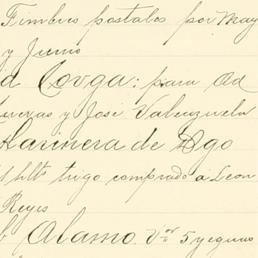 Timbres postales por May
y Junio
Covga: para Ad
Cuevas y José Valenzuela
Harinera de Dgo
trigo comprado a Leon
Reyes
Alamo. Vor 5 yeguas